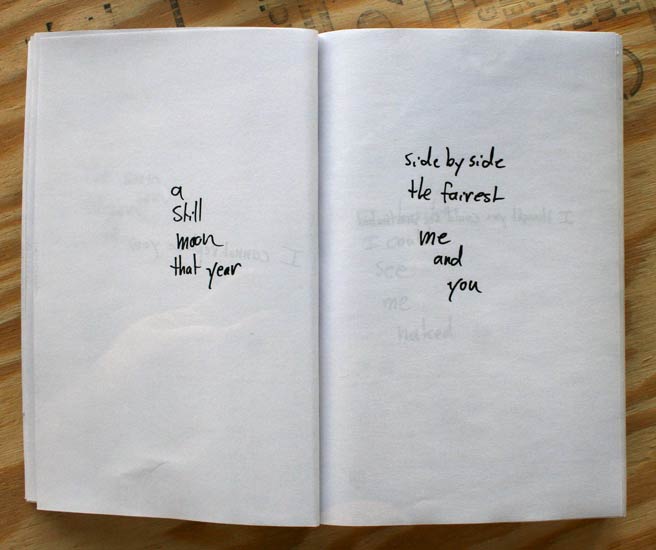 a
still
moon
that year
side by side
the fairest
me
and
you
I
see
me
naked